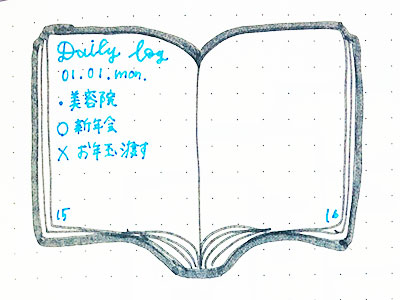 Daily log
01.01.mon.
・美容院
○ 新年会
× お年玉渡す
15
16